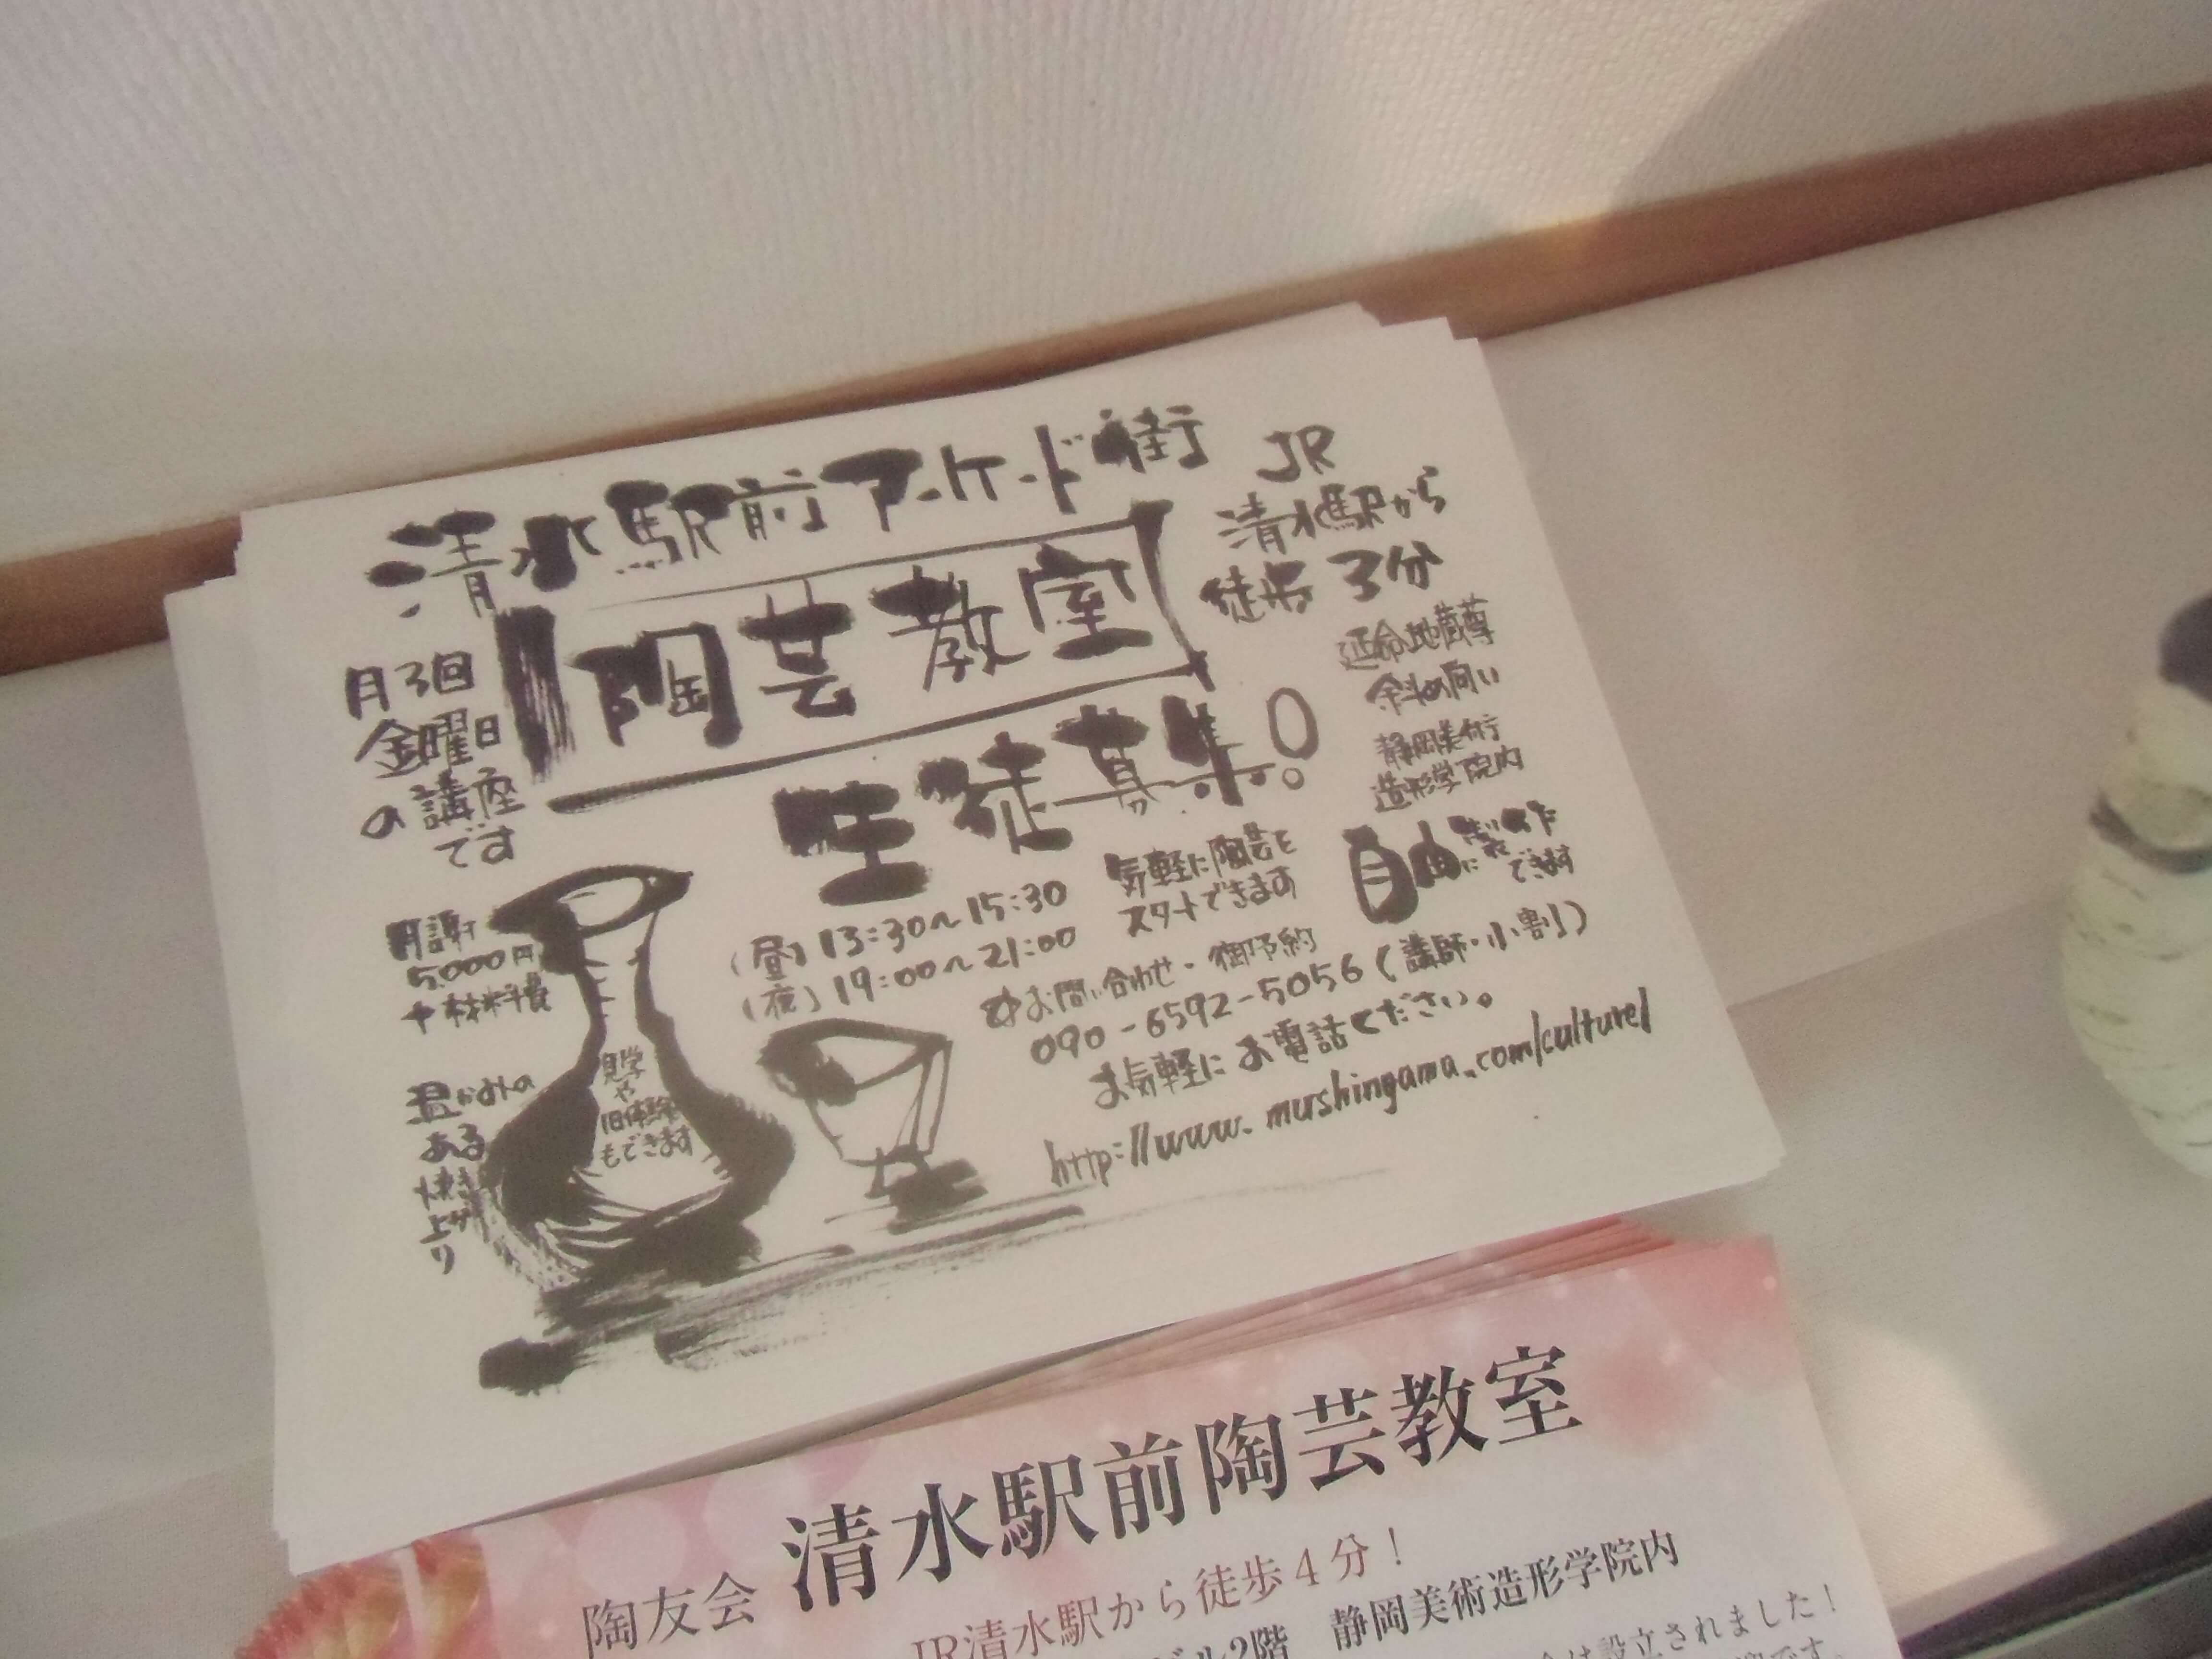 清水駅前アーケード街
陶芸教室
生徒募集!
JR
清水駅から
徒歩3分
延命地蔵尊
斜め向い
静岡美術
造形学院内
月3回
金曜日
の講座
です
自由に製作
できます
気軽に陶芸を
スタートできます
(昼)13:30〜15:30
(夜)19:00〜21:00
月謝
5.000円
+材料費
お問い合わせ・御予約
090-6592-5056(講師・小割)
お気軽にお電話ください。
http://www.mushingama.com/culture/
見学
や
1日体験
もできます
温かみの
ある
焼き
上がり
陶友会 清水駅前陶芸教室
JR清水駅から徒歩4分!
ビル2階 静岡美術造形学院内
会は設立されました!
です。